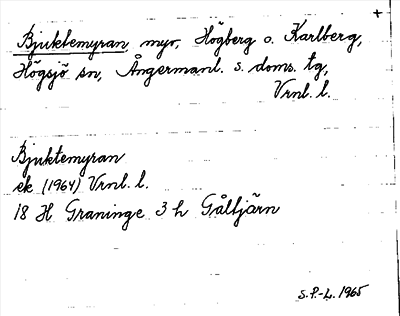 +
Bjuktemyran myr, Högberg o. Karlberg,
Högsjö sn, Ångermanl. s. doms. tg,
Vrnl. l.
Bjuktemyran
ek (1964) Vrnl. l.
18 H Graninge 3 h Gåltjärn
S.P.-L. 1965